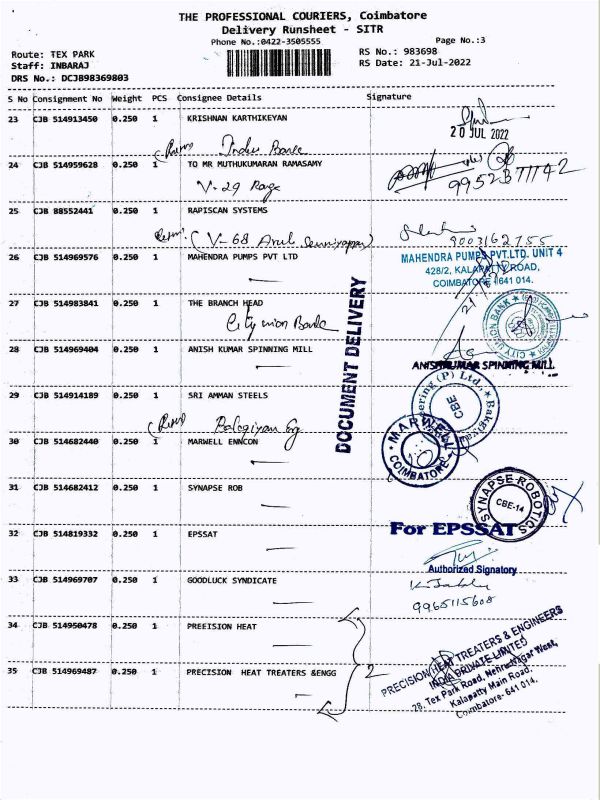 THE PROFESSIONAL COURIERS, Coimbatore
Delivery Runsheet - SITR
Phone No.:0422-3505555
Page No.:3
Route: TEX PARK
RS No.: 983698
Staff: INBARAJ
RS Date: 21-Jul-2022
DRS No.: DCJB98369803
S No Consignment No Weight PCS Consignee Details Signature
23 CJB 514913450 0.250 1 KRISHNAN KARTHIKEYAN
20 JUL 2022
Indus Bank
24 CJB 514959628 0.250 1 TO MR MUTHUKUMARAN RAMASAMY
V-29
25 CJB 88552441 0.250 1 RAPISCAN SYSTEMS
(V-68 Arul
9003162755
26 CJB 514969576 1 0.250 MAHENDRA PUMPS PVT LTD
MAHENDRA PUMPS PVT.LTD. UNIT 4
428/2, KALAPATTY ROAD,
COIMBATORE 641 014.
27 CJB 514983841 0.250 1 THE BRANCH HEAD
City union Bank
CITY UNION BANK
DOCUMENT DELIVERY
28 CJB 514969404 0.250 1 ANISH KUMAR SPINNING MILL
ANISHKUMAR SPINNING MILL
29 CJB 514914189 0.250 1 SRI AMMAN STEELS
CBE
30 CJB 514682440 0.250 1 MARWELL ENNCON
MARWELL
COIMBATORE
31 CJB 514682412 0.250 1 SYNAPSE ROB
SYNAPSE ROBOTICS
CBE-14
32 CJB 514819332 0.250 1 EPSSAT
For EPSSAT
Authorized Signatory
33 CJB 514969707 0.250 1 GOODLUCK SYNDICATE
9965115608
34 CJB 514950478 0.250 1 PREEISION HEAT
35 CJB 514969487 0.250 1 PRECISION HEAT TREATERS &ENGG
2
PRECISION HEAT TREATERS & ENGINEERS
INDIA PRIVATE LIMITED
28, Tex Park Road, Nehru Nagar West,
Kalapatty Main Road,
Coimbatore- 641 014.